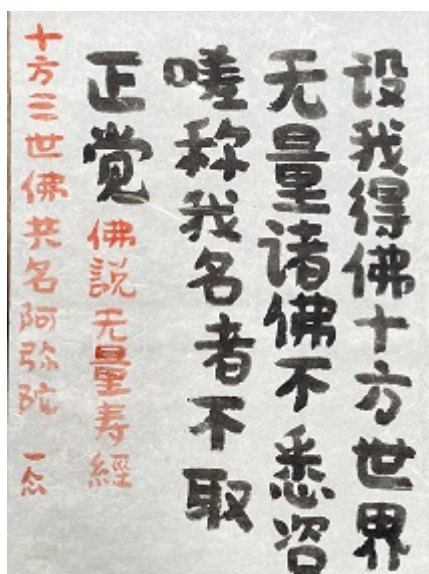 设我得佛十方世界
无量诸佛不悉咨
嗟称我名者不取
正觉 佛説无量寿經
十方三世佛共名阿弥陀 一念